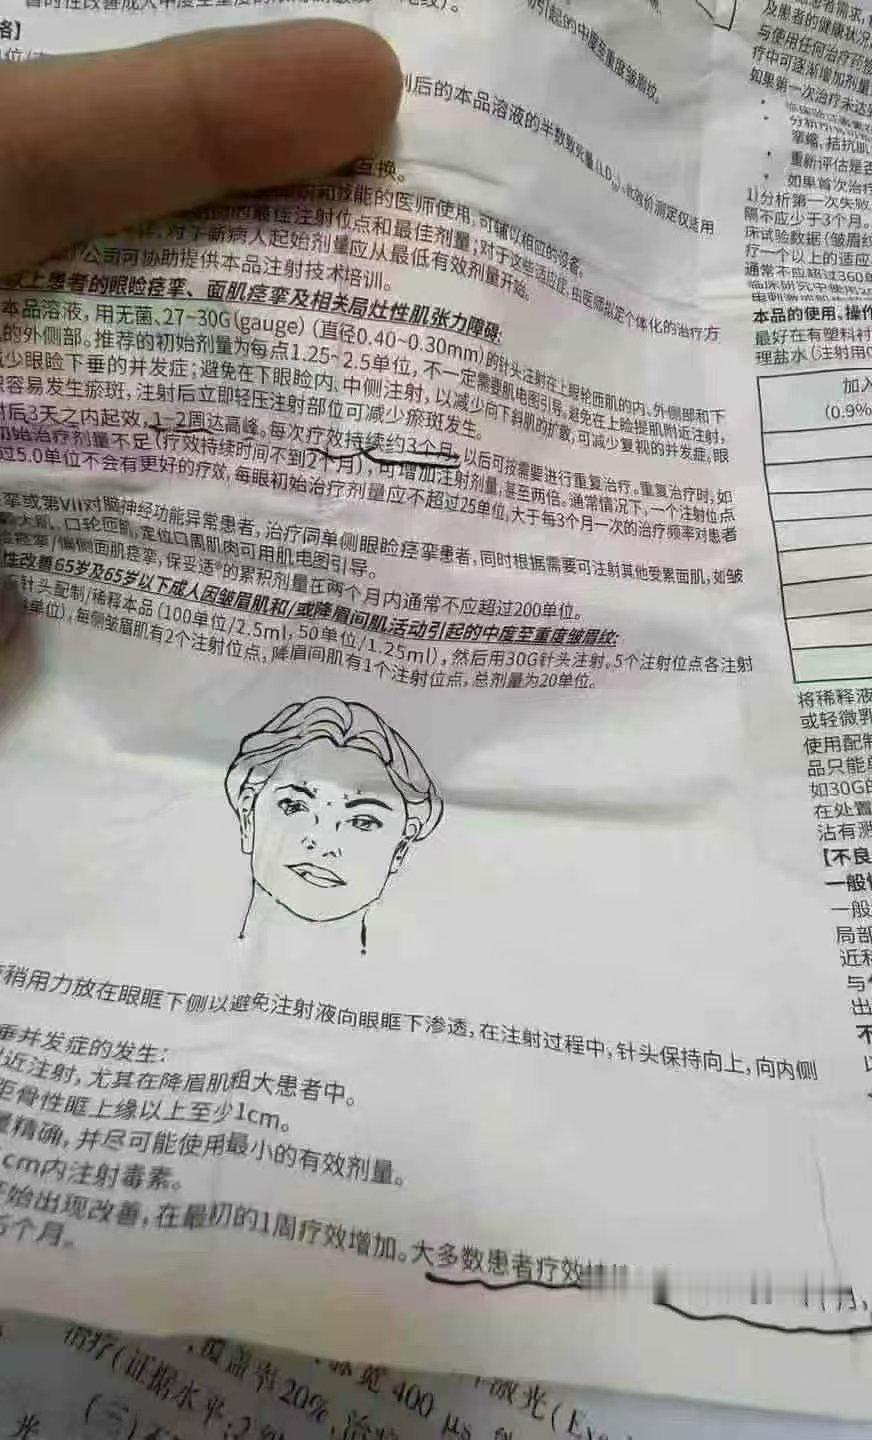 善的性改善成人中度至重度的
引起的中度至重度皱眉纹。
剂后的本品溶液的半数致死量(LD₅₀)。此效价测定仅适用
互换。
和技能的医师使用,可辅以相应的设备。
的最佳注射位点和最佳剂量;对于这些适应症,由医师拟定个体化的治疗方
对于新病人起始剂量应从最低有效剂量开始。
公司可协助提供本品注射技术培训。
以上患者的眼睑痉挛、面肌痉挛及相关局灶性肌张力障碍:
本品溶液,用无菌、27-30G(gauge)(直径0.40~0.30mm)的针头注射在上眼轮匝肌的内、外侧部和下
的外侧部。推荐的初始剂量为每点1.25~2.5单位,不一定需要肌电图引导。避免在上睑提肌附近注射,
减少眼睑下垂的并发症;避免在下眼睑内、中侧注射,以减少向下斜肌的扩散,可减少复视的并发症。眼
容易发生瘀斑,注射后立即轻压注射部位可减少瘀斑发生。
射后3天之内起效,1-2周达高峰。每次疗效持续约3个月,以后可按需要进行重复治疗。重复治疗时,如
初始治疗剂量不足(疗效持续时间不到2个月),可增加注射剂量,甚至两倍。通常情况下,一个注射位点
过5.0单位不会有更好的疗效,每眼初始治疗剂量应不超过25单位,大于每3个月一次的治疗频率对患者
挛或第VII对脑神经功能异常患者,治疗同单侧眼睑痉挛患者,同时根据需要可注射其他受累面肌,如皱
大肌、口轮匝肌,定位口周肌肉可用肌电图引导。
痉挛/偏侧面肌痉挛,保妥适®的累积剂量在两个月内通常不应超过200单位。
性改善65岁及65岁以下成人因皱眉肌和/或降眉间肌活动引起的中度至重度皱眉纹:
针头配制/稀释本品(100单位/2.5ml,50单位/1.25ml),然后用30G针头注射。5个注射位点各注射
单位),每侧皱眉肌有2个注射位点,降眉间肌有1个注射位点,总剂量为20单位。
稍用力放在眼眶下侧以避免注射液向眼眶下渗透,在注射过程中,针头保持向上,向内侧
垂并发症的发生:
近注射,尤其在降眉肌粗大患者中。
距骨性眶上缘以上至少1cm。
量精确,并尽可能使用最小的有效剂量。
cm内注射毒素。
开始出现改善,在最初的1周疗效增加。大多数患者疗效
个月。
患者需求,
及患者的健康状况
与使用任何治疗药物
疗中可逐渐增加剂量
如果第一次治疗未达
挛缩,拮抗肌
重新评估是否
如果首次治疗
1)分析第一次失败
隔不应少于3个月。
床试验数据(皱眉纹
疗一个以上的适应
通常不应超过360单
本品的使用、操作
最好在有塑料衬
理盐水(注射用0
加入
(0.9%
将稀释液
或轻微乳
使用配制
品只能单
如30G的
在处置
沾有溅
【不良
一般
一般
局部
近科
与
出
不
覆盖率20%,
脉宽400μs
激光(Ex
治疗(证据水平:2
(三)
光